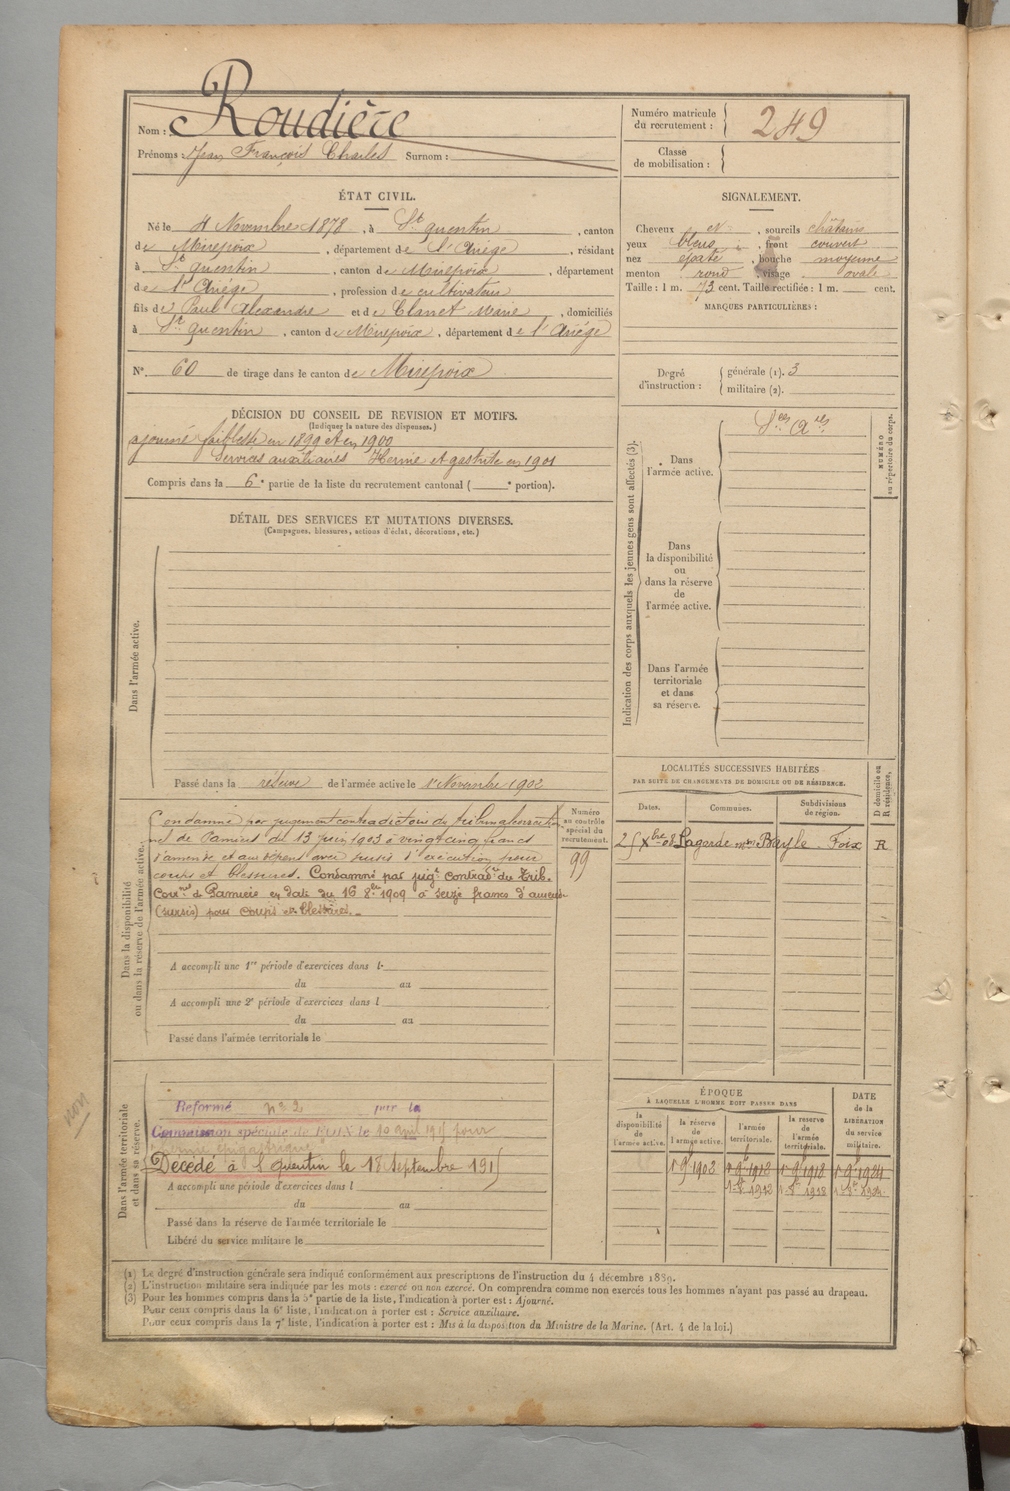 Nom : Roudière
Prénoms : Jean François Charles Surnom :
Numéro matricule du recrutement : 249
Classe de mobilisation :
ÉTAT CIVIL.
Né le 4 Novembre 1878, à St quentin, canton
de Mirepoix, département de l'Ariège, résidant
à St quentin, canton de Mirepoix, département
de l'Ariège, profession de cultivateur
fils de Paul Alexandre et de Clanet Marie, domiciliés
à St quentin, canton de Mirepoix, département de l'Ariège
N° 60 de tirage dans le canton de Mirepoix
SIGNALEMENT.
Cheveux et sourcils châtains
yeux bleus, front couvert
nez épaté, bouche moyenne
menton rond, visage ovale
Taille : 1 m. 73 cent. Taille rectifiée : 1 m. cent.
MARQUES PARTICULIÈRES :
Degré d'instruction :
générale (1). 3
militaire (2).
DÉCISION DU CONSEIL DE REVISION ET MOTIFS.
(Indiquer la nature des dispenses.)
ajourné faiblesse en 1899 et en 1900
Services auxiliaires Hernie et gastrite en 1901
Compris dans la 6e partie de la liste du recrutement cantonal ( e portion).
Indication des corps auxquels les jeunes gens sont affectés (3).
Dans l'armée active.
Sces Ares
Dans la disponibilité ou dans la réserve de l'armée active.
Dans l'armée territoriale et dans sa réserve.
NUMÉRO au répertoire du corps.
DÉTAIL DES SERVICES ET MUTATIONS DIVERSES.
(Campagnes, blessures, actions d'éclat, décorations, etc.)
Dans l'armée active.
Passé dans la réserve de l'armée active le 1er Novembre 1902
Dans la disponibilité ou dans la réserve de l'armée active.
Condamné par jugement contradictoire du tribunal correction
nel de Pamiers du 13 Juin 1903 à vingt cinq francs
d'amende et aux dépens avec sursis d'exécution pour
coups et blessures. Condamné par jugt contradre du Trib.
Cornel de Pamiers en date du 16 8bre 1909 à seize francs d'amende
(sursis) pour coups et blessures.
Numéro au contrôle spécial du recrutement.
99
A accompli une 1re période d'exercices dans l
du au
A accompli une 2e période d'exercices dans l
du au
Passé dans l'armée territoriale le
LOCALITÉS SUCCESSIVES HABITÉES
PAR SUITE DE CHANGEMENTS DE DOMICILE OU DE RÉSIDENCE.
Dates. Communes. Subdivisions de région. D domicile ou R résidence.
25 Xbre 08 Lagarde mon Bayle Foix R
Dans l'armée territoriale et dans sa réserve.
non
Reformé n° 2 par la
Commission spéciale de FOIX le 10 avril 1915 pour
hernie épigastrique
Décédé à St quentin le 18 Septembre 1915
A accompli une période d'exercices dans l
du au
Passé dans la réserve de l'armée territoriale le
Libéré du service militaire le
ÉPOQUE
À LAQUELLE L'HOMME DOIT PASSER DANS
la disponibilité de l'armée active.
la réserve de l'armée active.
l'armée territoriale.
la réserve de l'armée territoriale.
DATE de la LIBÉRATION du service militaire.
1r 9b 1902 1r 9b 1912 1r 9b 1918 1r 9b 1924
1912 1918
(1) Le degré d'instruction générale sera indiqué conformément aux prescriptions de l'instruction du 4 décembre 1889.
(2) L'instruction militaire sera indiquée par les mots : exercé ou non exercé. On comprendra comme non exercés tous les hommes n'ayant pas passé au drapeau.
(3) Pour les hommes compris dans la 5e partie de la liste, l'indication à porter est : Ajourné.
Pour ceux compris dans la 6e liste, l'indication à porter est : Service auxiliaire.
Pour ceux compris dans la 7e liste, l'indication à porter est : Mis à la disposition du Ministre de la Marine. (Art. 4 de la loi.)